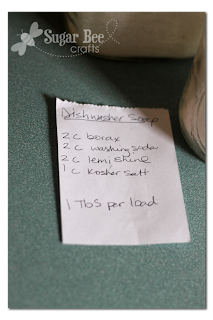 Sugar Bee
crafts
Dishwasher Soap
2 c borax
2 c washing soda
2 c lemi shine
1 c kosher salt
1 Tbs per load